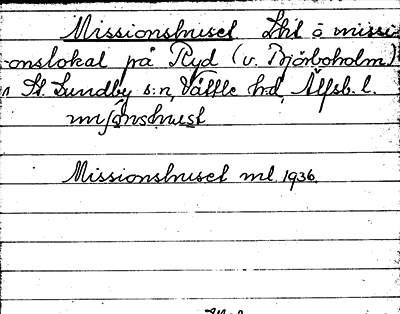 Missionshuset Lht o missi-
onslokal på Ryd (v. Björboholm)
i St. Lundby s:n, Vättle hd, Älfsb. l.
Missionshuset ml. 1936.